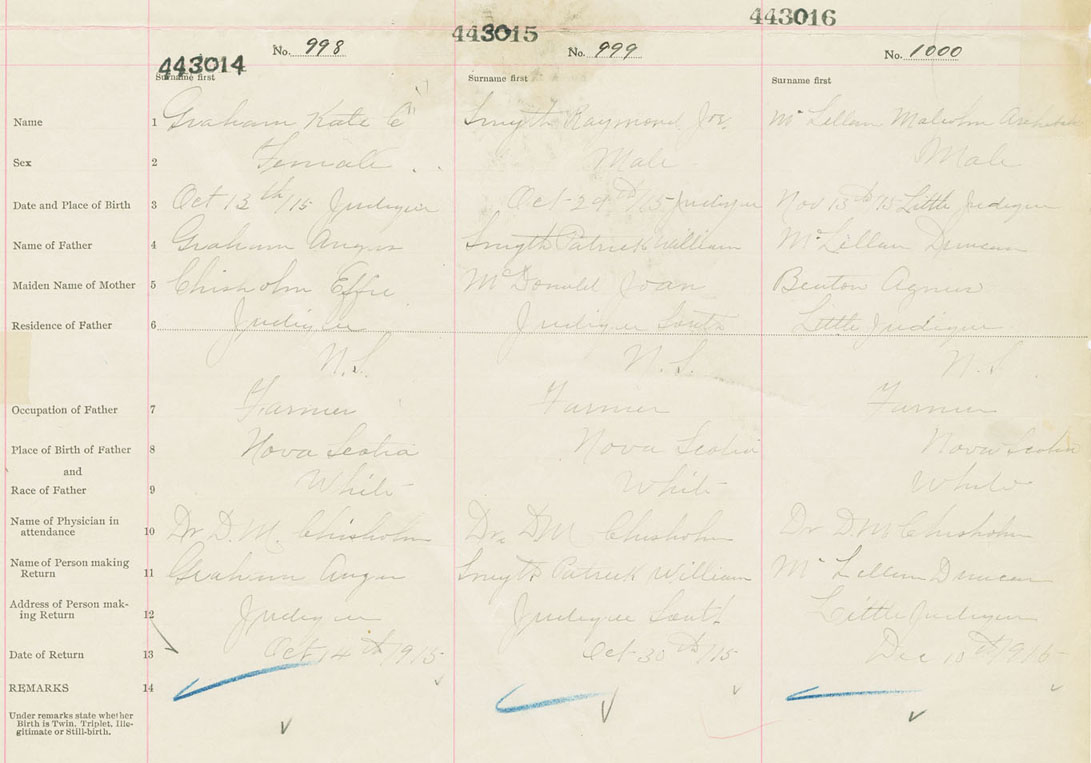 443014 443015 443016
No. 998 No. 999 No. 1000
Surname first Surname first Surname first
Name 1 Graham Kate C Smyth Raymond Jos. McLellan Malcolm
Sex 2 Female Male Male
Date and Place of Birth 3 Oct 13th/15 Judique Oct 29th/15 Judique Nov 13th/15 Little Judique
Name of Father 4 Graham Angus Smyth Patrick William McLellan Duncan
Maiden Name of Mother 5 Chisholm Effie McDonald Joan Beaton Agnes
Residence of Father 6 Judique Judique South Little Judique
N.S. N.S. N.S.
Occupation of Father 7 Farmer Farmer Farmer
Place of Birth of Father 8 Nova Scotia Nova Scotia Nova Scotia
and
Race of Father 9 White White White
Name of Physician in
attendance 10 Dr D. M. Chisholm Dr. D M Chisholm Dr D. M Chisholm
Name of Person making
Return 11 Graham Angus Smyth Patrick William McLellan Duncan
Address of Person mak-
ing Return 12 Judique Judique South Little Judique
Date of Return 13 Oct 14th 1915 Oct 30th/15 Dec 10th 1915
REMARKS 14
Under remarks state whether
Birth is Twin, Triplet, Ille-
gitimate or Still-birth.